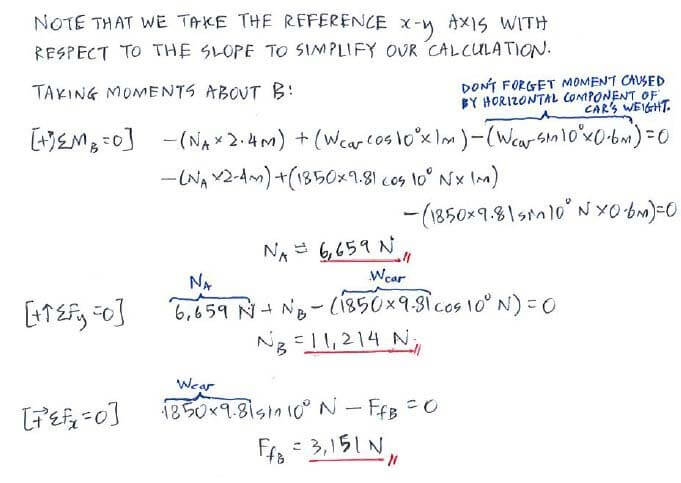 NOTE THAT WE TAKE THE REFERENCE x-y AXIS WITH
RESPECT TO THE SLOPE TO SIMPLIFY OUR CALCULATION.
TAKING MOMENTS ABOUT B:
DON'T FORGET MOMENT CAUSED
BY HORIZONTAL COMPONENT OF
CAR'S WEIGHT.
[+↻ΣM_B=0] -(N_A×2.4m)+(W_car cos10°×1m)-(W_car sin10°×0.6m)=0
-(N_A×2.4m)+(1850×9.81 cos 10° N×1m)
-(1850×9.81 sin10° N×0.6m)=0
N_A = 6,659 N
N_A W_car
[+↑ΣF_y=0] 6,659 N + N_B - (1850×9.81 cos 10° N) = 0
N_B = 11,214 N
W_car
[+→ΣF_x=0] 1850×9.81 sin 10° N - F_fB = 0
F_fB = 3,151 N